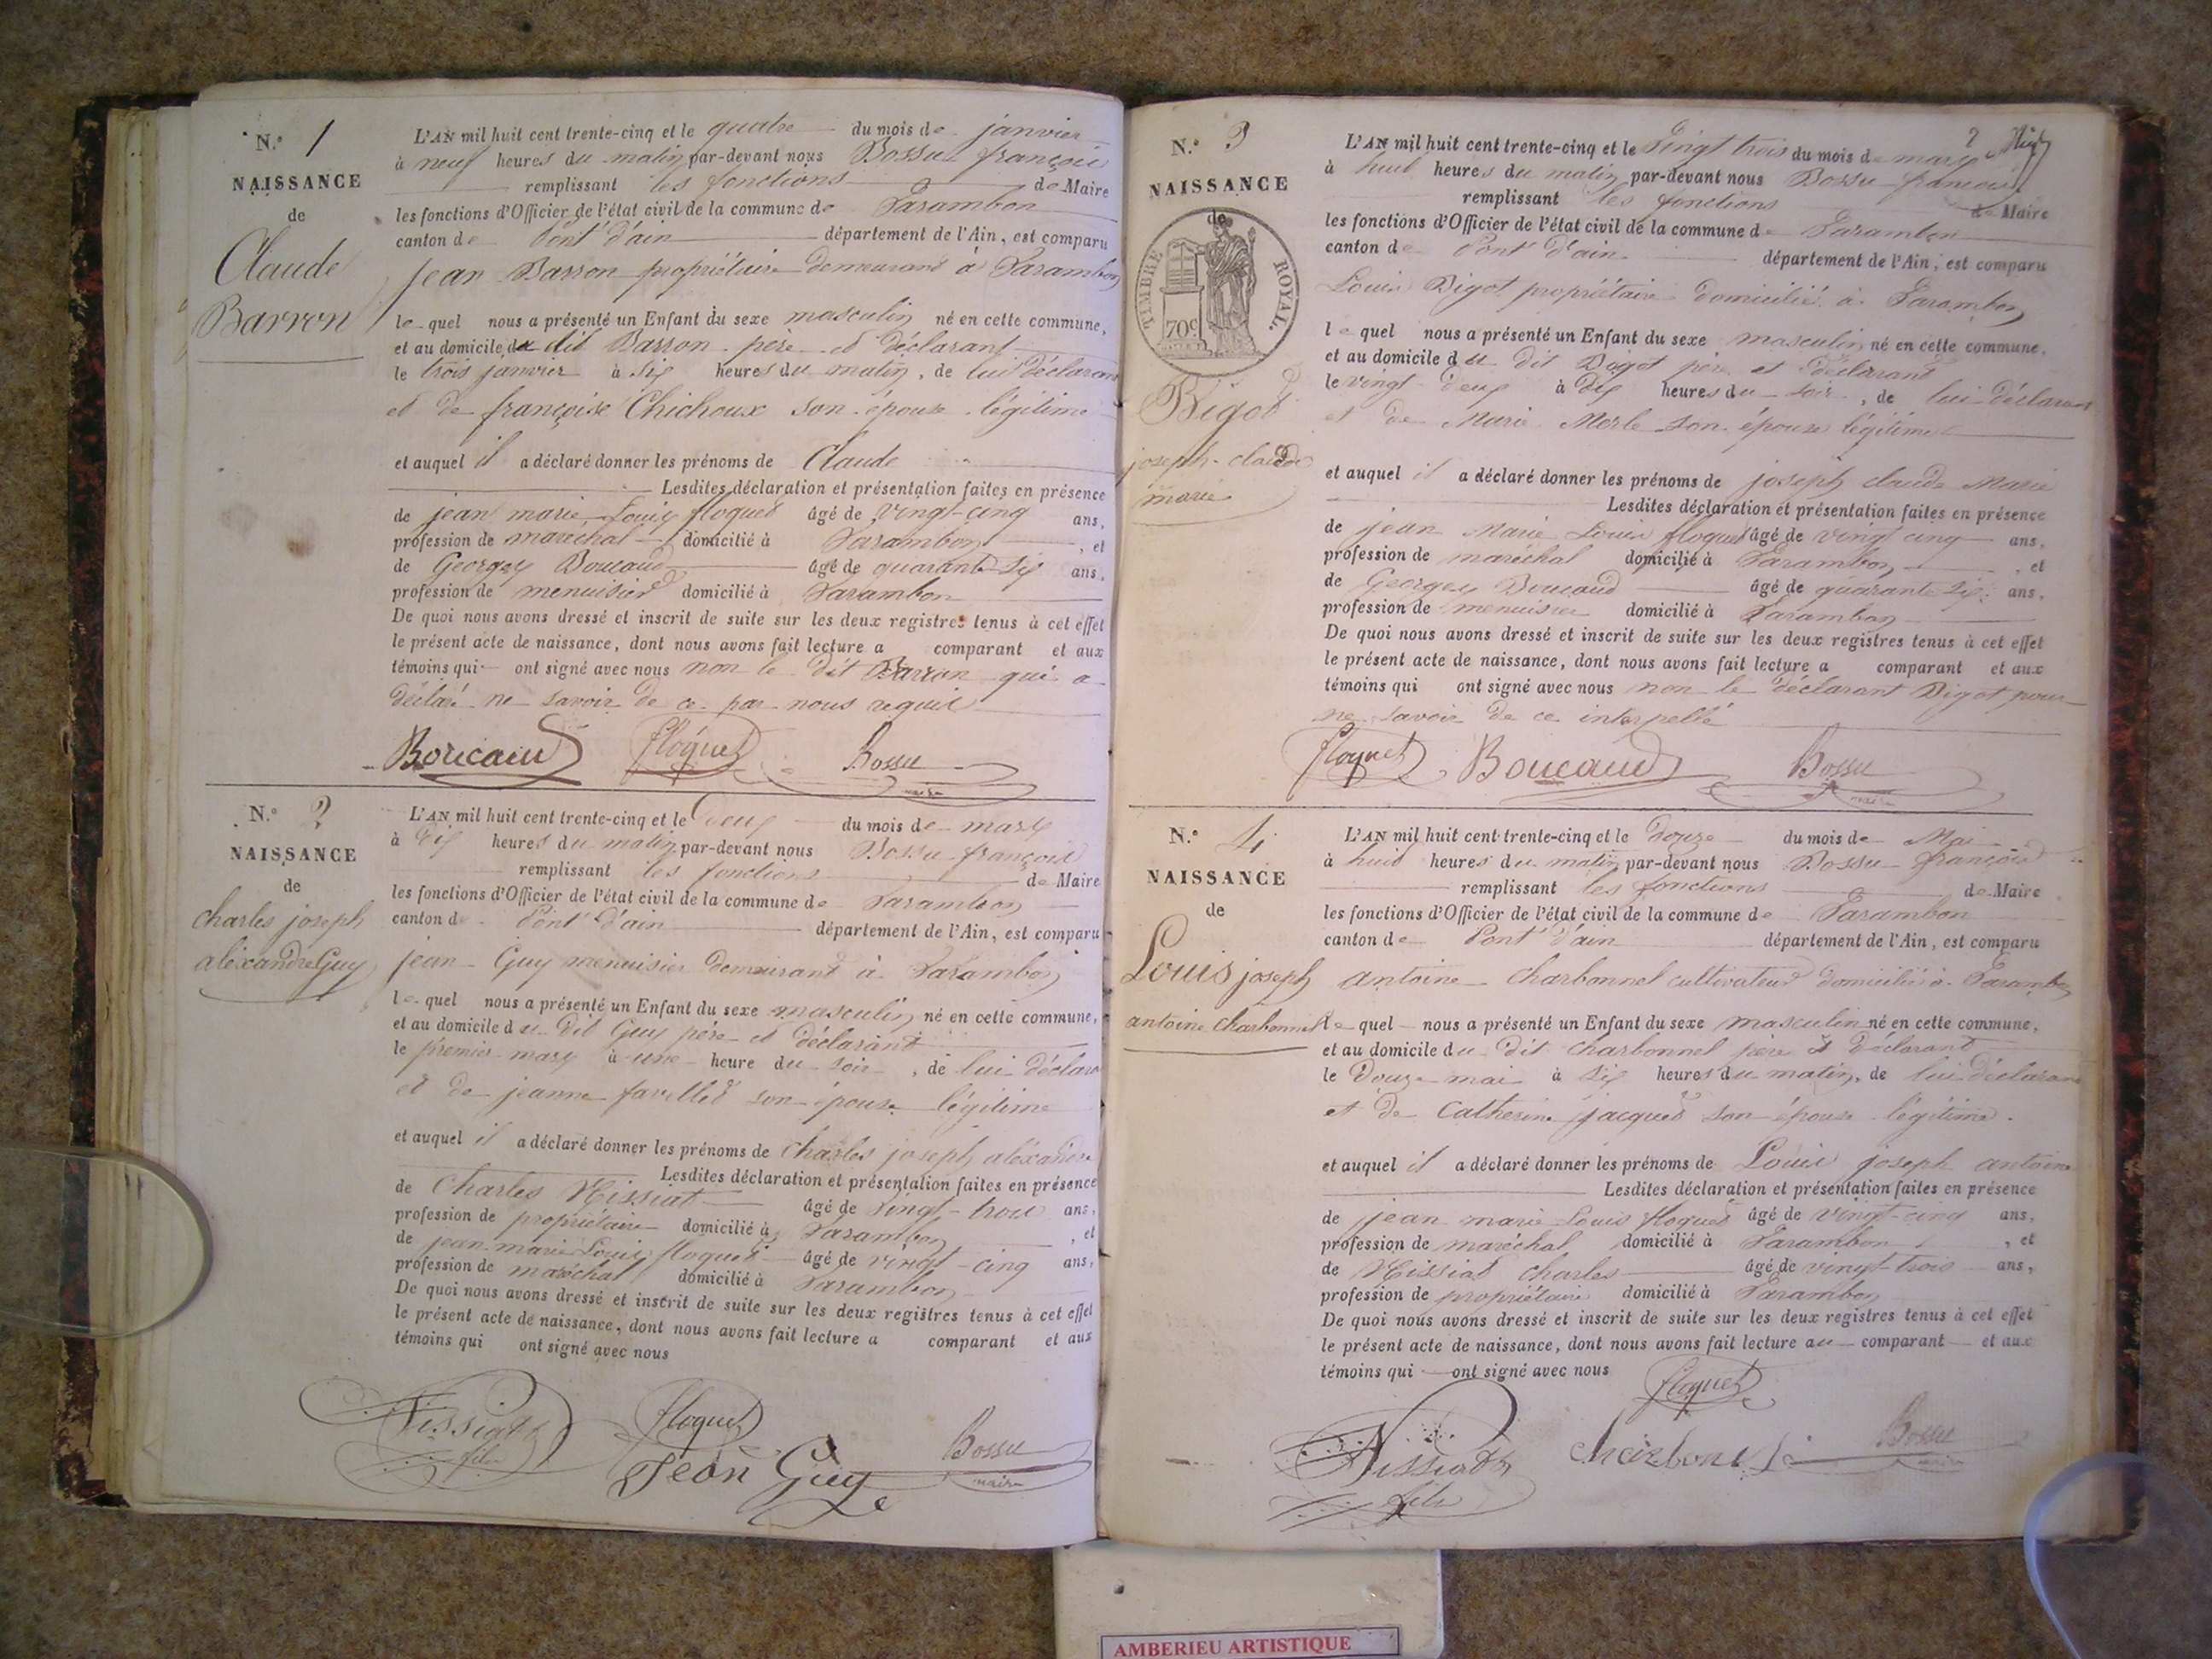 N.º 1
NAISSANCE
de
Claude
Barron
L'AN mil huit cent trente-cinq et le quatre du mois de janvier
à neuf heures du matin par-devant nous Bossu françois
remplissant les fonctions de Maire
les fonctions d'Officier de l'état civil de la commune de Varambon
canton de Pont d'ain département de l'Ain, est comparu
jean Barron propriétaire demeurant à Varambon
le quel nous a présenté un Enfant du sexe masculin né en cette commune,
et au domicile du dit Barron père et déclarant
le trois janvier à six heures du matin, de lui déclarant
et de françoise Chichoux son épouse légitime
et auquel il a déclaré donner les prénoms de Claude
Lesdites déclaration et présentation faites en présence
de jean marie Louis floquet âgé de vingt-cinq ans,
profession de maréchal domicilié à Varambon, et
de Georges Boucaud âgé de quarante six ans,
profession de menuisier domicilié à Varambon
De quoi nous avons dressé et inscrit de suite sur les deux registres tenus à cet effet
le présent acte de naissance, dont nous avons fait lecture a comparant et aux
témoins qui ont signé avec nous non le dit Barron qui a
déclaré ne savoir de ce par nous requis
Boucaud floquet Bossu
maire
N.º 2
NAISSANCE
de
charles joseph
aléxandre Guy
L'AN mil huit cent trente-cinq et le deux du mois de mars
à dix heures du matin par-devant nous Bossu françois
remplissant les fonctions de Maire
les fonctions d'Officier de l'état civil de la commune de Varambon
canton de Pont d'ain département de l'Ain, est comparu
jean Guy menuisier demeurant à Varambon
le quel nous a présenté un Enfant du sexe masculin né en cette commune,
et au domicile du dit Guy père et déclarant
le premier mars à une heure du soir, de lui déclarant
et de jeanne favellet son épouse légitime
et auquel il a déclaré donner les prénoms de Charles joseph aléxandre
Lesdites déclaration et présentation faites en présence
de Charles Nissiat âgé de vingt-trois ans,
profession de propriétaire domicilié à Varambon, et
de jean marie Louis floquet âgé de vingt-cinq ans,
profession de maréchal domicilié à Varambon
De quoi nous avons dressé et inscrit de suite sur les deux registres tenus à cet effet
le présent acte de naissance, dont nous avons fait lecture a comparant et aux
témoins qui ont signé avec nous
Nissiat floquet
fils Jean Guy Bossu
maire
2
N.º 3
NAISSANCE
de
TIMBRE ROYAL.
70c
Bigot
joseph-claude
marie
L'AN mil huit cent trente-cinq et le vingt trois du mois de mars
à huit heures du matin par-devant nous Bossu françois
remplissant les fonctions de Maire
les fonctions d'Officier de l'état civil de la commune de Varambon
canton de Pont d'ain département de l'Ain, est comparu
Louis Bigot propriétaire domicilié à Varambon
le quel nous a présenté un Enfant du sexe masculin né en cette commune,
et au domicile du dit Bigot père et déclarant
le vingt-deux à dix heures du soir, de lui déclarant
et de Marie Merle son épouse légitime
et auquel il a déclaré donner les prénoms de joseph claude Marie
Lesdites déclaration et présentation faites en présence
de jean Marie Louis floquet âgé de vingt cinq ans,
profession de maréchal domicilié à Varambon, et
de Georges Boucaud âgé de quarante six ans,
profession de menuisier domicilié à Varambon
De quoi nous avons dressé et inscrit de suite sur les deux registres tenus à cet effet
le présent acte de naissance, dont nous avons fait lecture a comparant et aux
témoins qui ont signé avec nous non le déclarant Bigot pour
ne savoir de ce interpellé
floquet Boucaud Bossu
maire
N.º 4
NAISSANCE
de
Louis joseph
antoine charbonnel
L'AN mil huit cent trente-cinq et le douze du mois de Mai
à huit heures du matin par-devant nous Bossu françois
remplissant les fonctions de Maire
les fonctions d'Officier de l'état civil de la commune de Varambon
canton de Pont d'ain département de l'Ain, est comparu
antoine charbonnel cultivateur domicilié à Varambon
le quel nous a présenté un Enfant du sexe masculin né en cette commune,
et au domicile du dit charbonnel père et déclarant
le douze mai à six heures du matin, de lui déclarant
et de Catherine jacquet son épouse légitime.
et auquel il a déclaré donner les prénoms de Louis joseph antoine
Lesdites déclaration et présentation faites en présence
de jean marie Louis floquet âgé de vingt-cinq ans,
profession de maréchal domicilié à Varambon, et
de Nissiat charles âgé de vingt-trois ans,
profession de propriétaire domicilié à Varambon
De quoi nous avons dressé et inscrit de suite sur les deux registres tenus à cet effet
le présent acte de naissance, dont nous avons fait lecture au comparant et aux
témoins qui ont signé avec nous
floquet
Nissiat charbonel Bossu
fils maire
AMBERIEU ARTISTIQUE